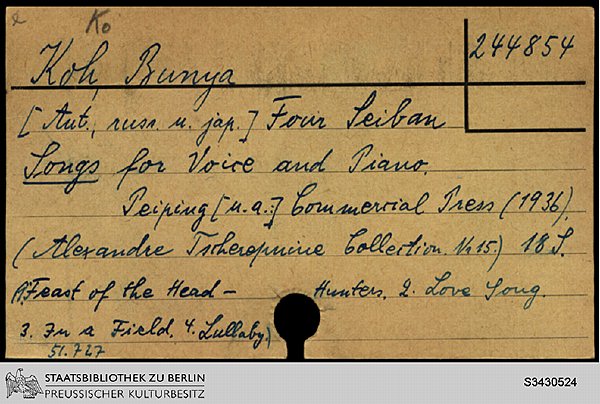 Ko
244854
Koh, Bunya
[Aut., russ. u. jap.] Four Seiban
Songs for Voice and Piano.
Peiping [u.a.:] Commercial Press (1936).
(Alexandre Tscherepnine Collection. Nr 15) 18 S.
(1. Feast of the Head - Hunters. 2. Love Song.
3. In a Field. 4. Lullaby)
51.727
STAATSBIBLIOTHEK ZU BERLIN
PREUSSISCHER KULTURBESITZ
S3430524